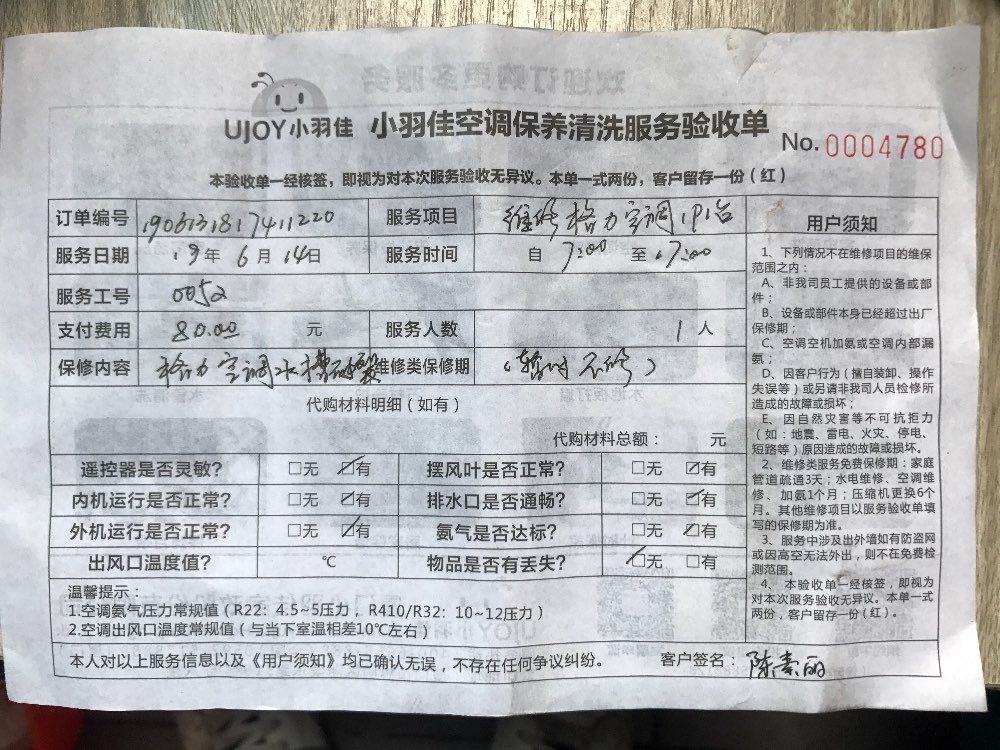 UJOY小羽佳 小羽佳空调保养清洗服务验收单
No. 0004780
本验收单一经核签，即视为对本次服务验收无异议。本单一式两份，客户留存一份（红）
订单编号 190613181741122​0 服务项目 维修格力空调1P1台
服务日期 19年6月14日 服务时间 自 7:00 至 17:00
服务工号 0052
支付费用 80.00 元 服务人数 1人
保修内容 格力空调水槽破裂 维修类保修期 （暂时不修）
代购材料明细（如有）
代购材料总额： 元
遥控器是否灵敏？ □无 ☑有 摆风叶是否正常？ □无 ☑有
内机运行是否正常？ □无 ☑有 排水口是否通畅？ □无 ☑有
外机运行是否正常？ □无 ☑有 氨气是否达标？ □无 ☑有
出风口温度值？ ℃ 物品是否有丢失？ ☑无 □有
温馨提示：
1.空调氨气压力常规值（R22：4.5~5压力，R410/R32：10~12压力）
2.空调出风口温度常规值（与当下室温相差10℃左右）
本人对以上服务信息以及《用户须知》均已确认无误，不存在任何争议纠纷。 客户签名：陈素丽
用户须知
1、下列情况不在维修项目的维保
范围之内：
A、非我司员工提供的设备或部
件；
B、设备或部件本身已经超过出厂
保修期；
C、空调空机加氨或空调内部漏
氨；
D、因客户行为（擅自装卸、操作
失误等）或另请非我司人员检修所
造成的故障或损坏；
E、因自然灾害等不可抗拒力
（如：地震、雷电、火灾、停电、
短路等）原因造成的故障或损坏。
2、维修类服务免费保修期：家庭
管道疏通3天；水电维修、空调维
修、加氨1个月；压缩机更换6个
月。其他维修项目以服务验收单填
写的保修期为准。
3、服务中涉及出外墙如有防盗网
或因高空无法外出，则不在免费检
测范围。
4、本验收单一经核签，即视为
对本次服务验收无异议。本单一式
两份，客户留存一份（红）。